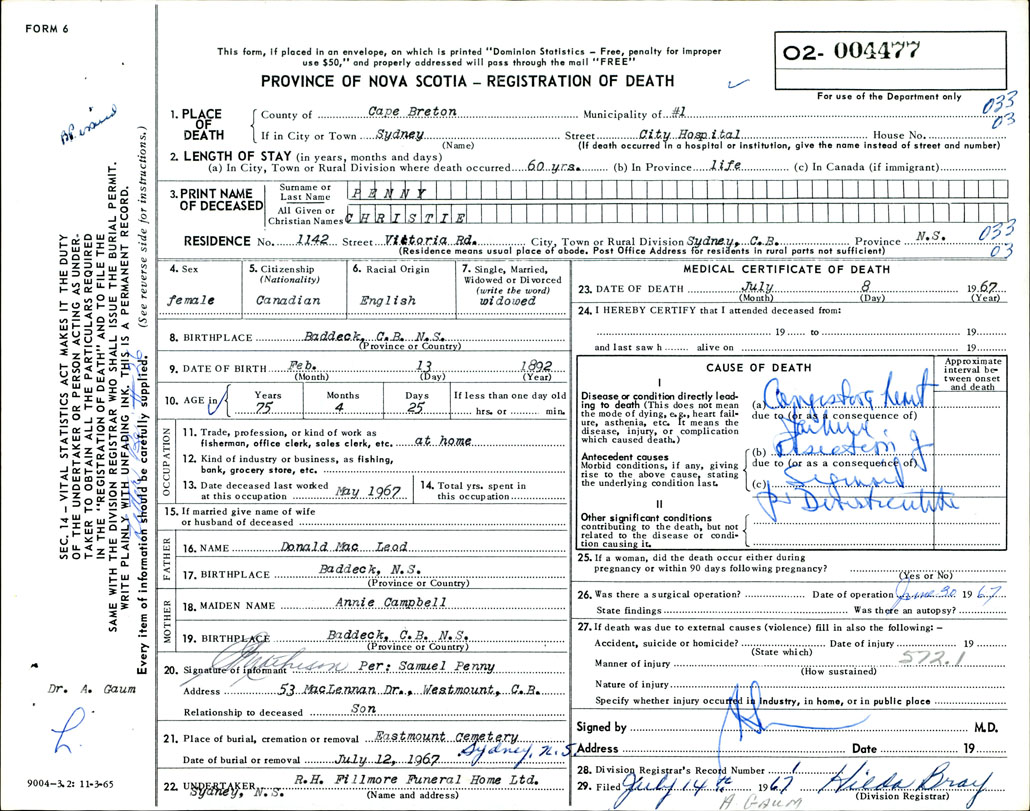 FORM 6
This form, if placed in an envelope, on which is printed "Dominion Statistics – Free, penalty for improper
use $50," and properly addressed will pass through the mail "FREE"
O2- 004477
PROVINCE OF NOVA SCOTIA – REGISTRATION OF DEATH
For use of the Department only
033
03
1. PLACE OF DEATH
County of Cape Breton Municipality of #1
If in City or Town Sydney Street City Hospital House No.
(Name) (If death occurred in a hospital or institution, give the name instead of street and number)
2. LENGTH OF STAY (in years, months and days)
(a) In City, Town or Rural Division where death occurred 60 yrs. (b) In Province life (c) In Canada (if immigrant)
3. PRINT NAME OF DECEASED
Surname or Last Name PENNY
All Given or Christian Names CHRISTIE
033
03
RESIDENCE No. 1142 Street Victoria Rd. City, Town or Rural Division Sydney, C.B. Province N.S.
(Residence means usual place of abode. Post Office Address for residents in rural parts not sufficient)
4. Sex
female
5. Citizenship
(Nationality)
Canadian
6. Racial Origin
English
7. Single, Married,
Widowed or Divorced
(write the word)
widowed
8. BIRTHPLACE Baddeck, C.B. N.S.
(Province or Country)
9. DATE OF BIRTH Feb. 13 1892
(Month) (Day) (Year)
10. AGE in
Years Months Days If less than one day old
75 4 25 hrs. or min.
OCCUPATION
11. Trade, profession, or kind of work as
fisherman, office clerk, sales clerk, etc. at home
12. Kind of industry or business, as fishing,
bank, grocery store, etc.
13. Date deceased last worked
at this occupation May 1967
14. Total yrs. spent in
this occupation
15. If married give name of wife
or husband of deceased
FATHER
16. NAME Donald Mac Leod
17. BIRTHPLACE Baddeck, N.S.
(Province or Country)
MOTHER
18. MAIDEN NAME Annie Campbell
19. BIRTHPLACE Baddeck, C.B. N.S.
(Province or Country)
20. Signature of informant Per: Samuel Penny
Address 53 MacLennan Dr., Westmount, C.B.
Relationship to deceased Son
21. Place of burial, cremation or removal Eastmount Cemetery
Sydney, N.S.
Date of burial or removal July 12, 1967
22. UNDERTAKER R.H. Fillmore Funeral Home Ltd.
Sydney, N.S. (Name and address)
MEDICAL CERTIFICATE OF DEATH
23. DATE OF DEATH July 8 1967
(Month) (Day) (Year)
24. I HEREBY CERTIFY that I attended deceased from:
19 to 19
and last saw h alive on 19
CAUSE OF DEATH
Approximate
interval be-
tween onset
and death
I
Disease or condition directly lead-
ing to death (This does not mean
the mode of dying, e.g., heart fail-
ure, asthenia, etc. It means the
disease, injury, or complication
which caused death.)
(a) Congestive heart
due to (or as a consequence of)
failure
Antecedent causes
Morbid conditions, if any, giving
rise to the above cause, stating
the underlying condition last.
(b) Resection of
due to (or as a consequence of)
(c) Sigmoid
Diverticulitis
II
Other significant conditions
contributing to the death, but not
related to the disease or condi-
tion causing it.
25. If a woman, did the death occur either during
pregnancy or within 90 days following pregnancy?
(Yes or No)
26. Was there a surgical operation? Date of operation June 30 1967
State findings Was there an autopsy?
27. If death was due to external causes (violence) fill in also the following: –
Accident, suicide or homicide? Date of injury 19
(State which)
572.1
Manner of injury
(How sustained)
Nature of injury
Specify whether injury occurred in industry, in home, or in public place
Signed by M.D.
Address Date 19
28. Division Registrar's Record Number
29. Filed July 14th 1967 Hilda Bray
(Division Registrar)
A. GAUM
SEC. 14 – VITAL STATISTICS ACT MAKES IT THE DUTY
OF THE UNDERTAKER OR PERSON ACTING AS UNDER-
TAKER TO OBTAIN ALL THE PARTICULARS REQUIRED
IN THE "REGISTRATION OF DEATH" AND TO FILE THE
SAME WITH THE DIVISION REGISTRAR WHO SHALL ISSUE THE BURIAL PERMIT.
WRITE PLAINLY WITH UNFADING INK. THIS IS A PERMANENT RECORD.
Every item of information should be carefully supplied. (See reverse side for instructions.)
Dr. A. Gaum
9004-3.2: 11-3-65